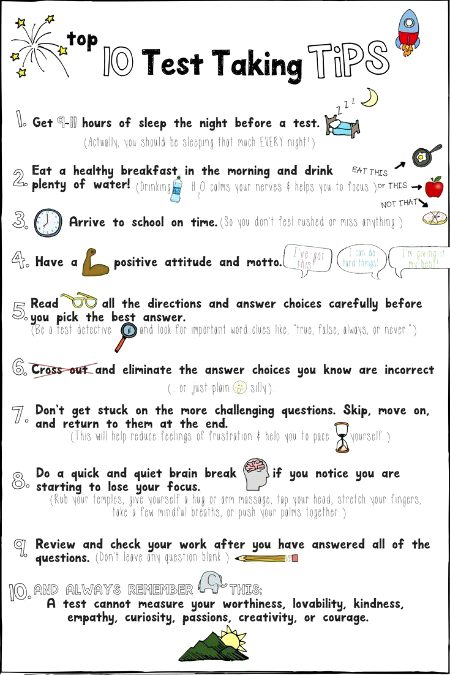 top 10 Test Taking TiPS
1. Get 9-11 hours of sleep the night before a test.
z z z
(Actually, you should be sleeping that much EVERY night!)
2. Eat a healthy breakfast in the morning and drink
plenty of water! (Drinking H2O calms your nerves & helps you to focus.)
EAT THIS
or THIS
NOT THAT
3. Arrive to school on time. (So you don't feel rushed or miss anything.)
4. Have a positive attitude and motto.
I've got this!
I can do hard things!
I'm giving it my best!
5. Read all the directions and answer choices carefully before
you pick the best answer.
(Be a test detective and look for important word clues like, "true, false, always, or never.")
6. Cross out and eliminate the answer choices you know are incorrect
(...or just plain silly).
7. Don't get stuck on the more challenging questions. Skip, move on,
and return to them at the end.
(This will help reduce feelings of frustration & help you to pace yourself.)
8. Do a quick and quiet brain break if you notice you are
starting to lose your focus.
(Rub your temples, give yourself a hug or arm massage, tap your head, stretch your fingers,
take a few mindful breaths, or push your palms together.)
9. Review and check your work after you have answered all of the
questions. (Don't leave any question blank.)
10. AND ALWAYS REMEMBER THIS:
A test cannot measure your worthiness, lovability, kindness,
empathy, curiosity, passions, creativity, or courage.